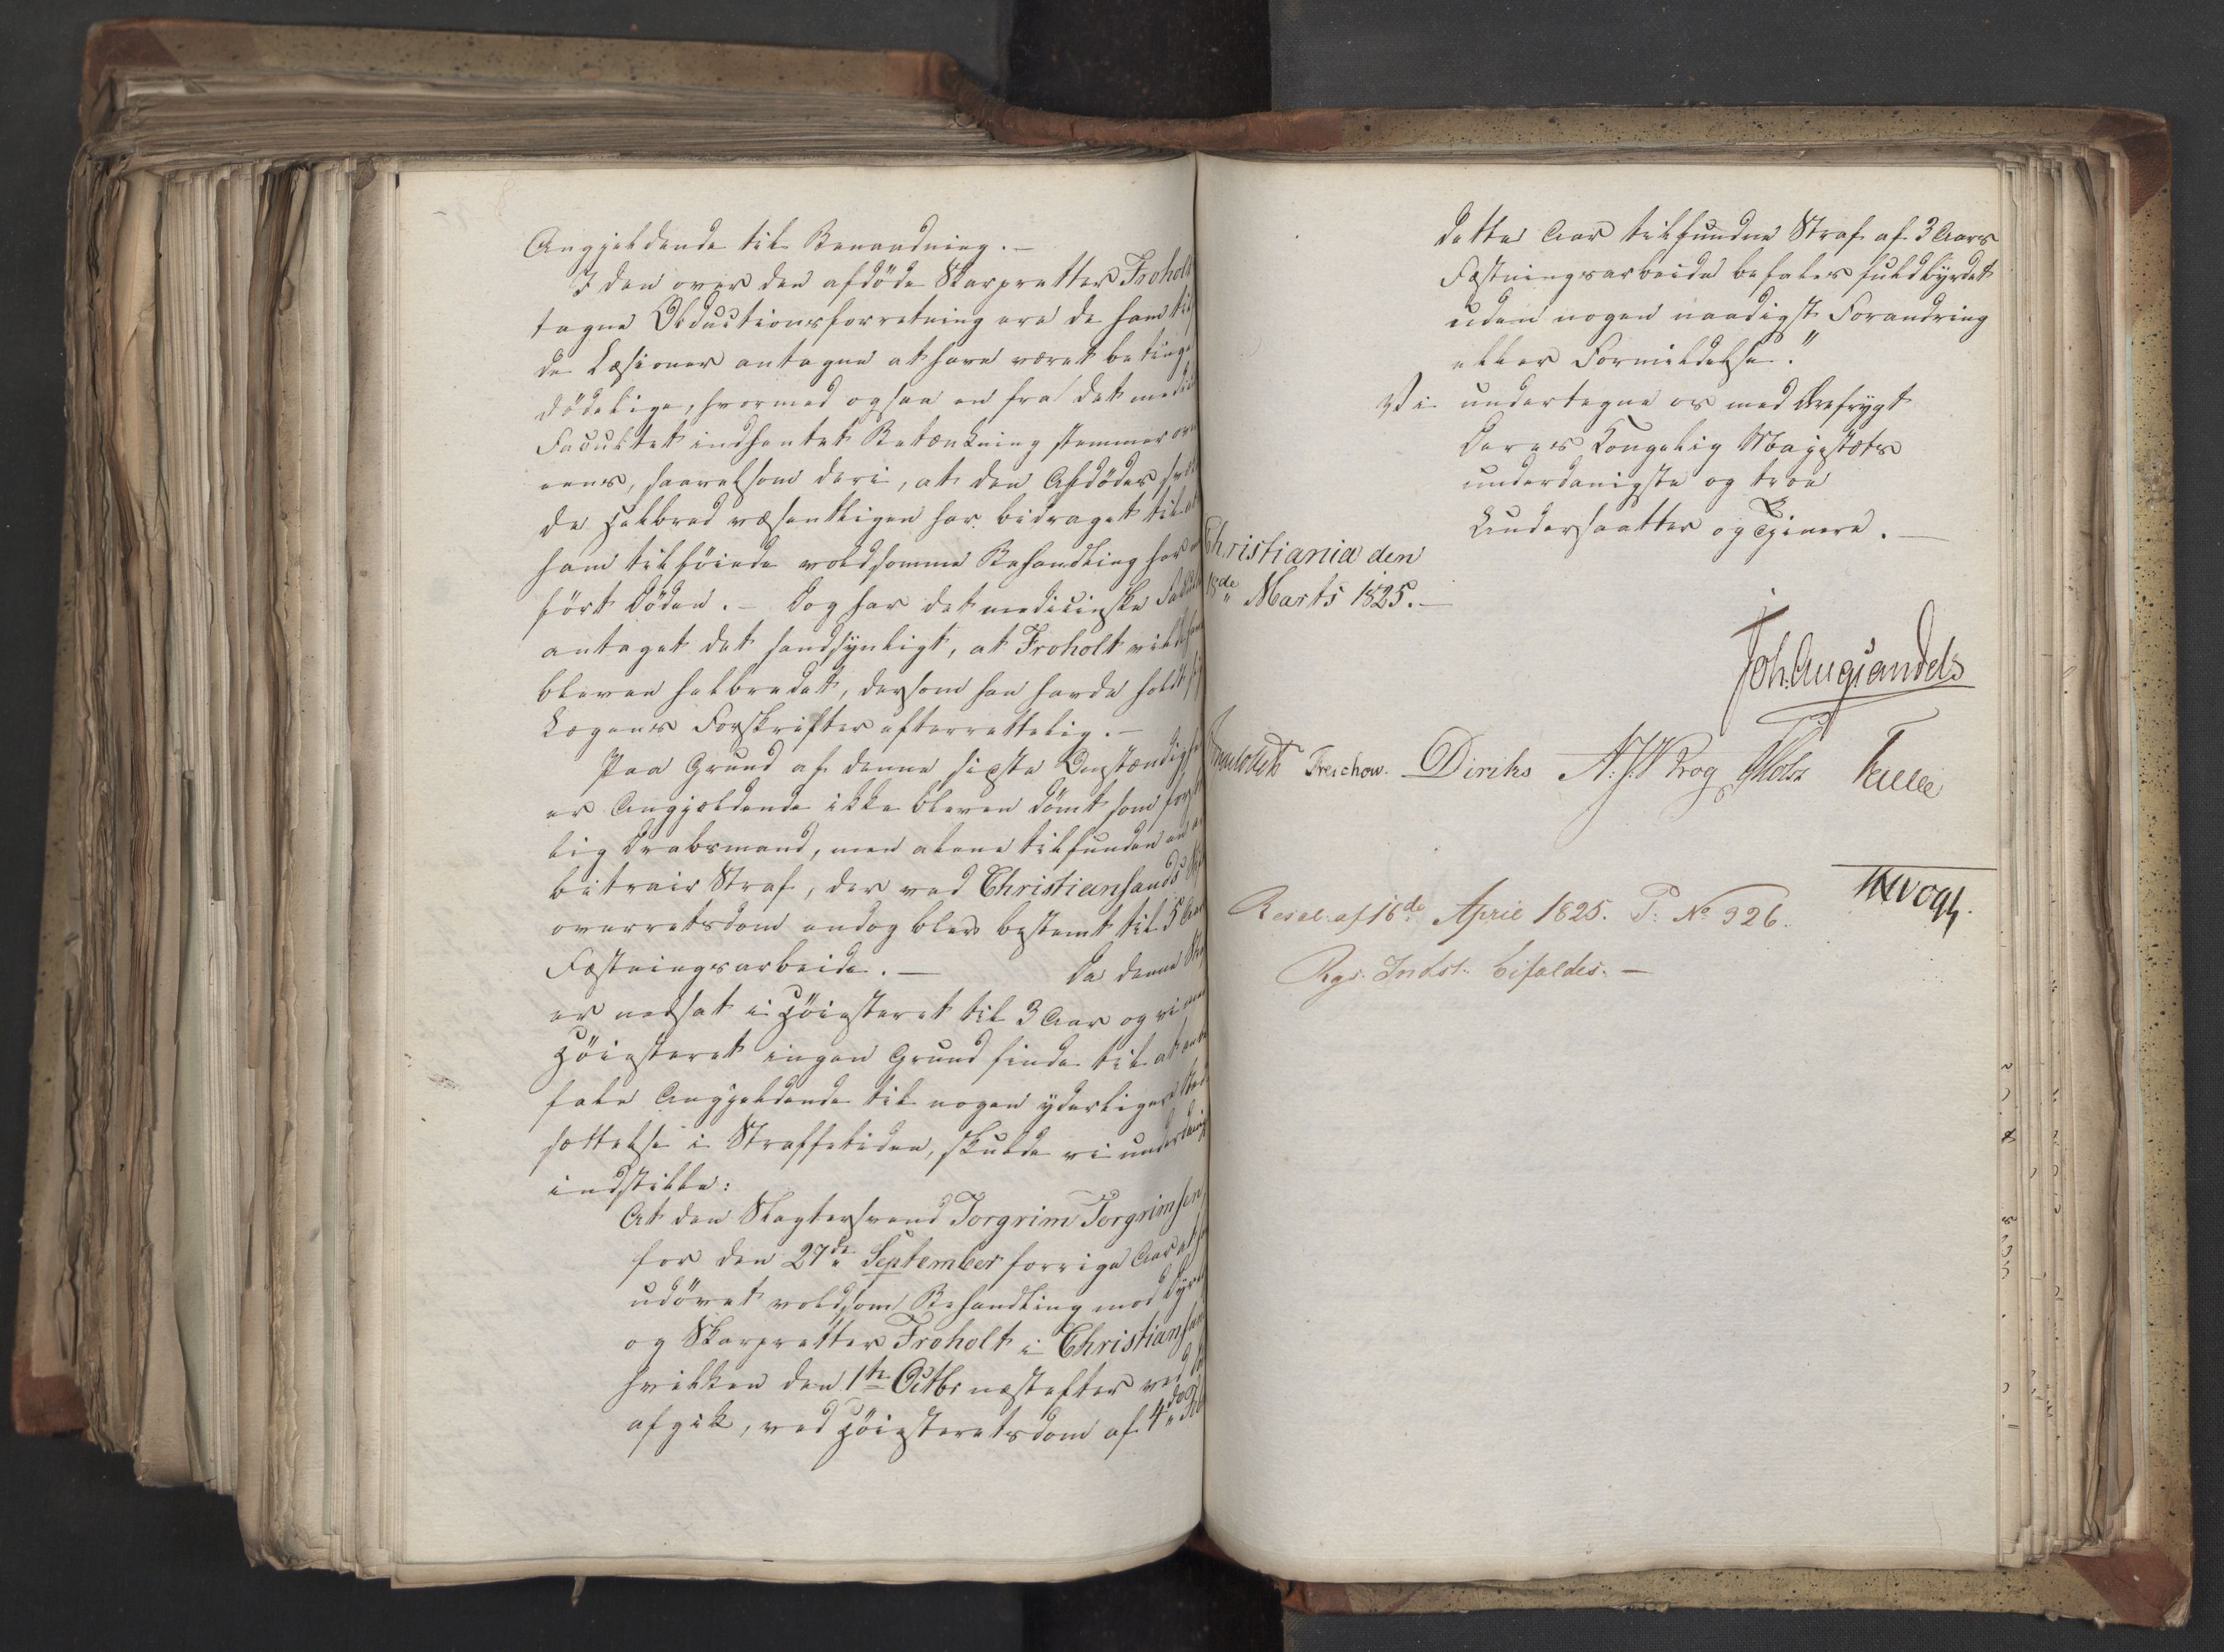 Angjeldende til Benaadning. —
I den over den afdöde Skarpretter Froholt
tagne Obductionsforretning ere de ham til
de Læsioner antagne at have været beting
dödelige, hvormed ogsaa en fra det medic
Facultet indhentet Betænkning stemmer over
eens, saavelsom deri, at den Afdödes
de Helbred væsentligen har bidraget til at
ham tilföiede voldsomme Behandling har
fört Döden. — Dog har det medicinske Facult
antaget det sandsynligt, at Froholt vilde
bleven helbredet, dersom han havde holdt sig
Lægens Forskrifter efterrettelig. —
Paa Grund af denne sidste Omstændighe
er Angjældende ikke bleven dömt som forsæt
lig Drabsmand, men alene tilfunden en ar
bitrair Straf, der ved Christiansands
overretsdom endog blev bestemt til 5 Aars
Fæstningsarbeide. — Da denne Straf
er nedsat i Höiesteret til 3 Aar og vi med
Höiesteret ingen Grund finde til at anbe
fale Angjeldende til nogen yderligere Ned
sættelse i Straffetiden, skulde vi underdanigst
indstille:
At den Slagtersvend Torgrim Torgrimsen
for den 27de September forrige Aar at ha
udövet voldsom Behandling mod
og Skarpretter Froholt i Christiansand
hvilken den 1ste Octbr næstefter ved
afgik, ved Höiesteretsdom af 4de Feb
dette Aar tilfundne Straf af 3 Aars
Fæstningsarbeide befales fuldbyrdet
uden nogen naadigst Forandring
eller Formildelse."
Vi undertegne os med Ærefrygt
Deres Kongelig Majestæts
underdanigste og troe
Undersaatter og Tjenere. —
Christiania den
18de Marts 1825. —
Joh. Aug Sandels
Treschow. Diriks Krog Holst Fasting
Resol. af 16de April 1825. P: No 926.
Rgs. Indst. bifaldes. —
Vogt.